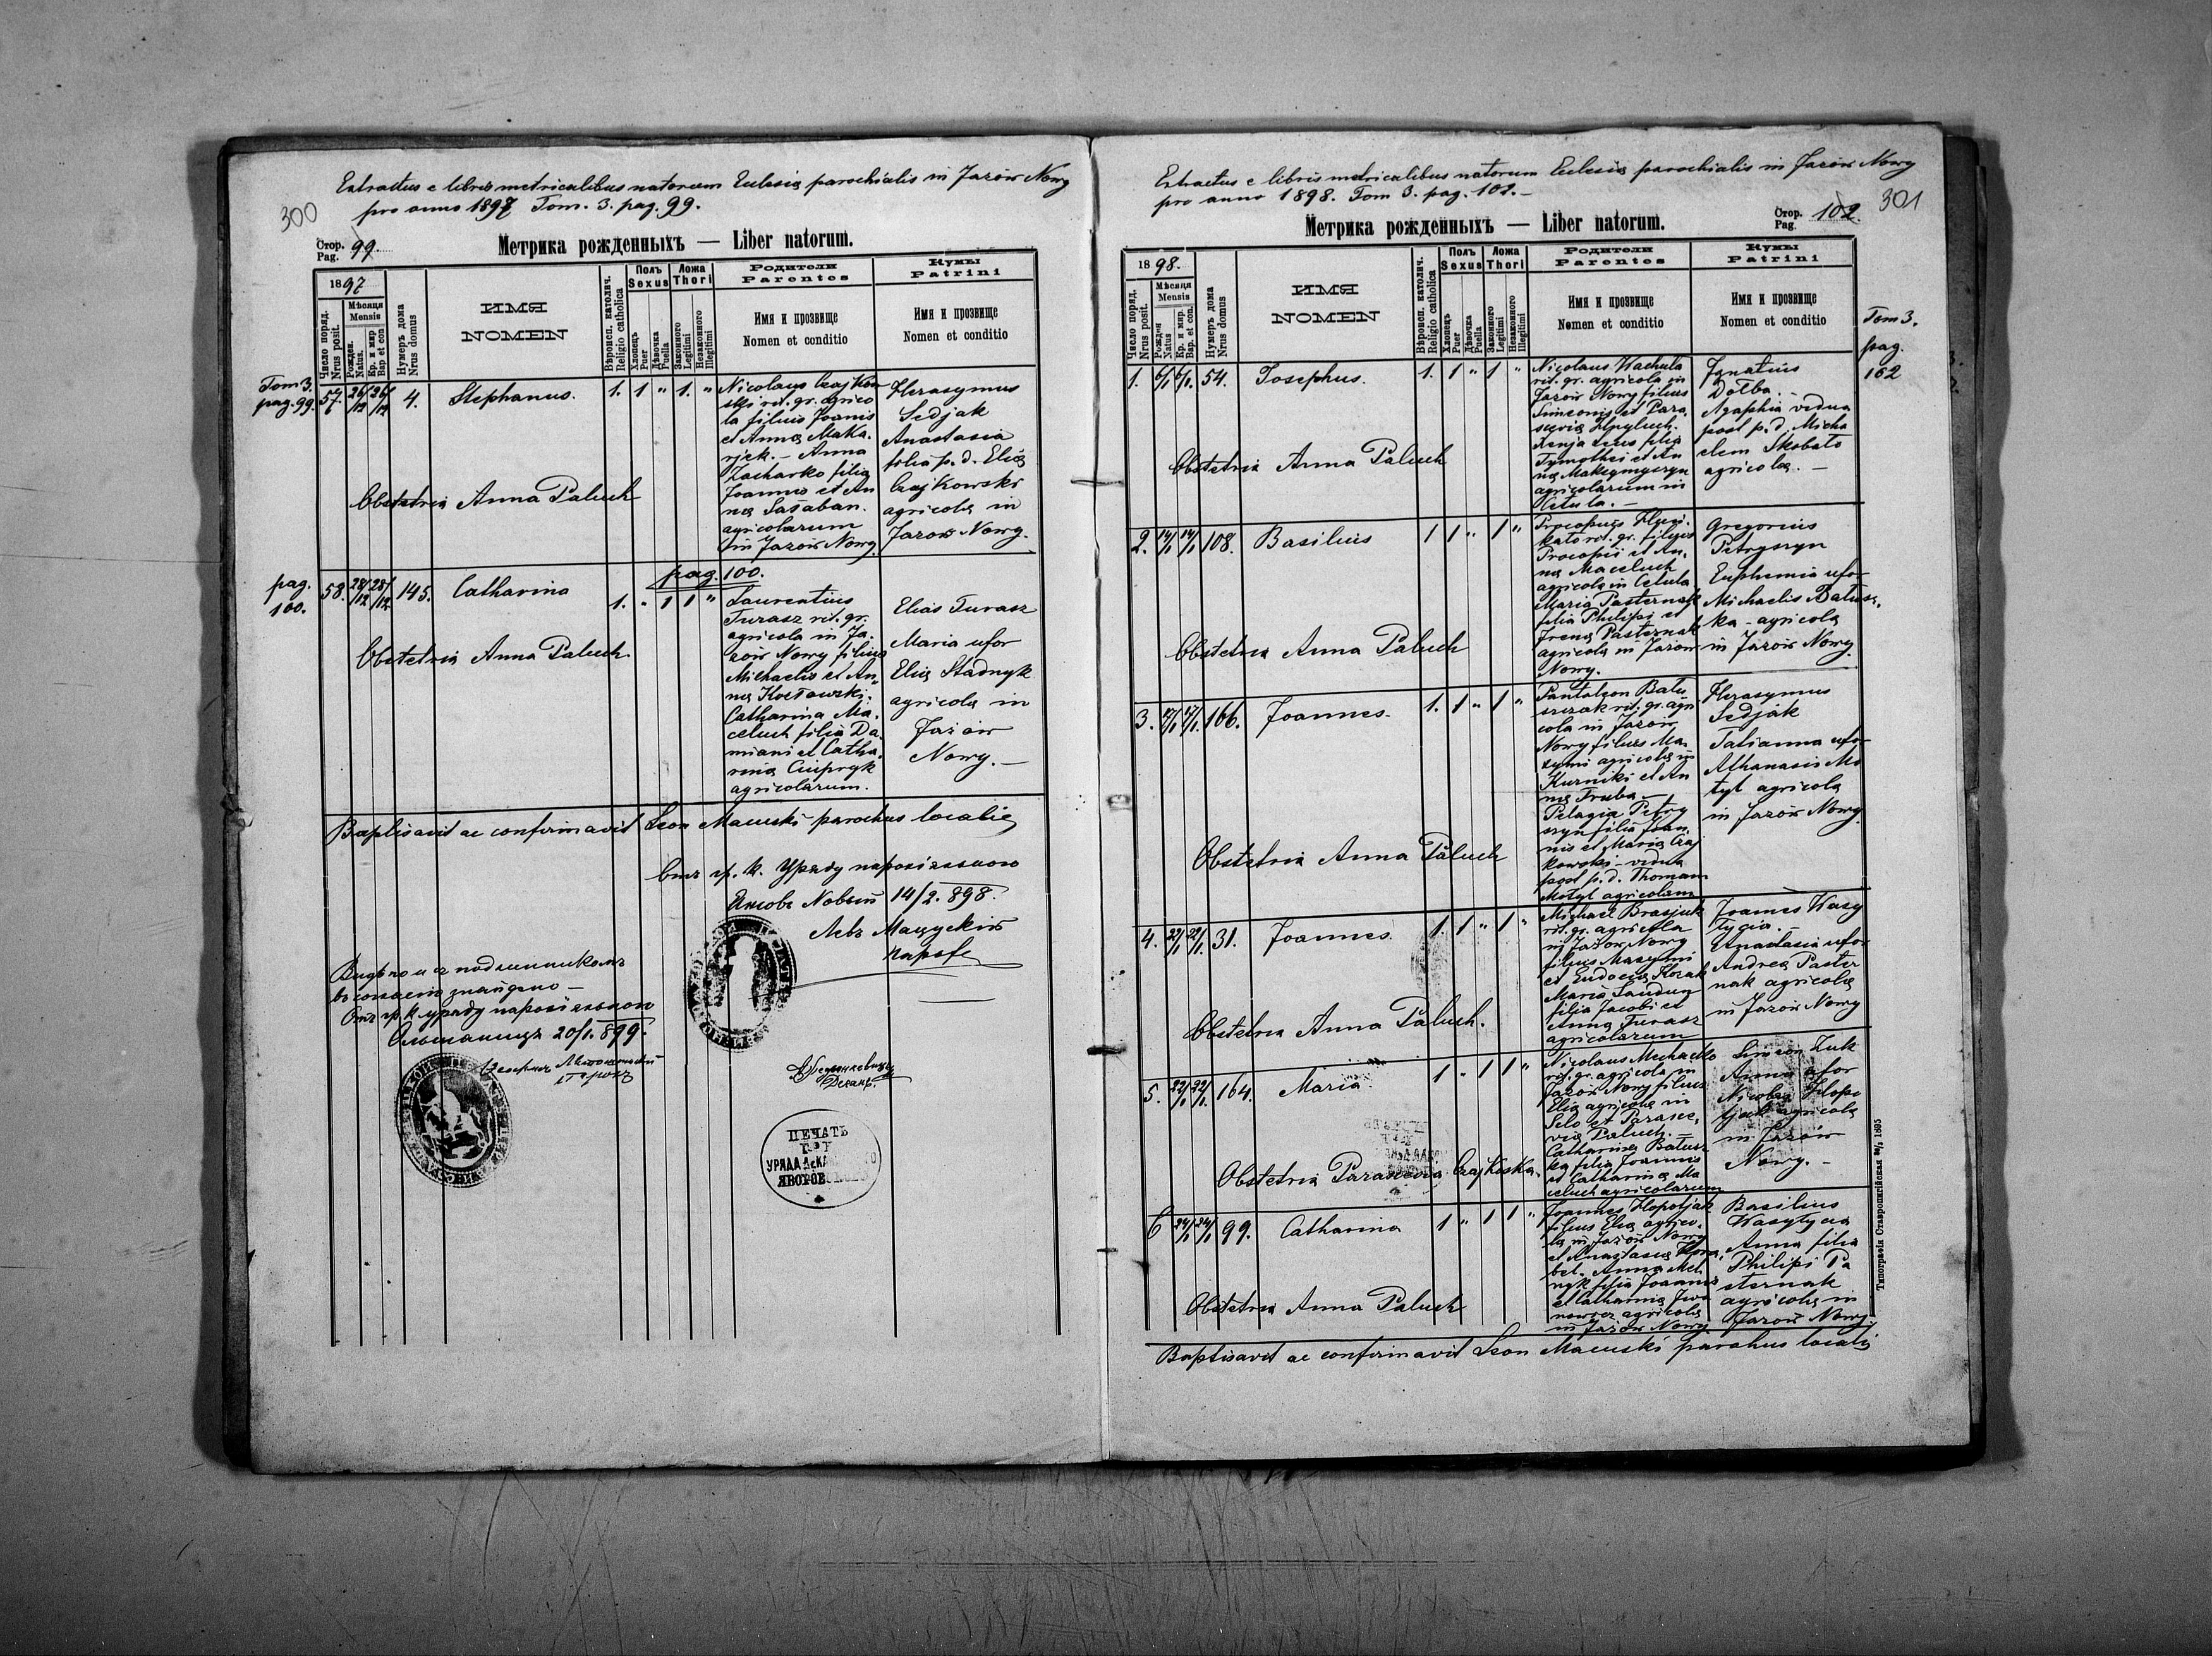 Extractus e libris metricalibus natorum Eclesia parochialis in Jazów Nowy
pro anno 1897 Tom. 3. pag. 99.
300
Стор. Pag. 99.
Метрика рожденныхъ — Liber natorum.
1897
Число поряд. Nrus posit.
Мѣсяця Mensis
Рожден. Natus.
Кр. и мир Bap et con
Нумеръ дома Nrus domus
ИМЯ
NOMEN
Вѣроисп. католич. Religio catholica
Полъ Sexus
Хлопецъ Puer
Дѣвочка Puella
Ложа Thori
Законного Legitimi
Незаконного Illegitimi
Родители Parentes
Имя и прозвище
Nomen et conditio
Кумы Patrini
Имя и прозвище
Nomen et conditio
Tom 3.
pag. 99.
57. 26/12 26/12 4. Stephanus. 1. 1 " 1. "
Nicolaus Czajkow
ski rit. gr. agrico
la filius Joanis
et Anna Maka.
rjek. – Anna
Zacharko filia
Joannis et An
na Sašaban.
agricolarum
in Jazów Nowy.
Herasymus
Sedjak
Anastasia
filia p. d. Elia
Czajkowski
agricola in
Jazów Nowy.
Obstetrix Anna Paluch
pag. 100.
pag.
100.
58. 28/12 28/12 145. Catharina 1. " 1 1 "
Laurentius
Turasz rit. gr.
agricola in Ja.
zów Nowy filius
Michaelis et An.
na Kosťowski.
Catharina Ma.
celuch filia Da.
miani et Catha.
rina Ciupryk
agricolarum.
Elias Turasz
Maria uxor
Elia Stadnyk
agricola in
Jazów
Nowy. –
Obstetrix Anna Paluch
Baptisavit ac confirmavit Leon Macuski parochus localis
Отъ гр. к. Уряду парохіяльного
Язовъ Новый 14/2. 898.
Левъ Мацускій
парохъ
Отъ гр. к. уряду парохіяльного
20/1. 899.
Деканъ.
ПЕЧАТЬ
ГР. К.
УРЯДА ДЕКА
ЯВОРОВ
Extractus e libris metricalibus natorum Eclesia parochialis in Jazów Nowy
pro anno 1898. Tom 3. pag. 102. –
301
Стор. Pag. 102.
Метрика рожденныхъ — Liber natorum.
1898.
Число поряд. Nrus posit.
Мѣсяця Mensis
Рожден Natus
Кр. и мир. Bap. et con.
Нумеръ дома Nrus domus
ИМЯ
NOMEN
Вѣроисп. католич. Religio catholica
Полъ Sexus
Хлопецъ Puer
Дѣвочка Puella
Ложа Thori
Законного Legitimi
Незаконного Illegitimi
Родители Parentes
Имя и прозвище
Nomen et conditio
Кумы Patrini
Имя и прозвище
Nomen et conditio
Tom 3.
pag.
102
1. 6/1 6/1. 54. Josephus. 1. 1 " 1 "
Nicolaus Wachula
rit. gr. agricola in
Jazów Nowy filius
Simeonis et Para.
scevia
filia
Tymothei et An
na Maksymyszyn
agricolarum in
Cetula. –
Ignatius
Dolba
Agaphia vidua
post p. d. Micha
elem Skobalo
agricola. –
Obstetrix Anna Paluch
2. 14/1 14/1 108. Basilius 1 1 " 1 "
Procopius
rit. gr. filius
Procopii et An.
na Maceluch
agricola in Cetula.
Maria Pasternak
filia Philippi et
Irena Pasternak
agricola in Jazów
Nowy.
Gregorius
Petryszyn
Euphemia uxor
Michaelis Batusz.
ka – agricola
in Jazów Nowy.
Obstetrix Anna Paluch
3. 166. Joannes. 1. 1 " 1 "
Pantaleon Batu
szczak rit. gr. agri
cola in Jazów
Nowy filius Ma.
xymi agricola in
Kurniki et An
na Truba –
Pelagia Petry
szyn filia Joan.
nis et Maria Czaj
kowski – vidua
post p. d. Thomam
Motyl agricolam
Herasymus
Sedjak
Tatianna uxor
Athanasii Mo
tyl agricola
in Jazów Nowy.
Obstetrix Anna Paluch
4. 22/1 22/1 31. Joannes. 1. 1 " 1 "
Michael Brasjuk
rit. gr. agricola
in Jazów Nowy
filius Maxymi
et Eudocia Kozak
Maria Landun
filia Jacobi et
Anna Turasz
agricolarum
Joannes Wasy
lycia. –
Anastasia uxor
Andrea Paster
nak agricola
in Jazów Nowy
Obstetrix Anna Paluch.
5. 22/1 22/1. 164. Maria 1 " 1 1 "
Nicolaus Mechaello
rit. gr. agricola in
Jazów Nowy filius
Elia agricola in
Selo et Parasce.
via Paluch. –
Catharina Batusz
ka filia Joannis
et Catharina Ma
celuch agricolarum
Simeon Zuk
Anna uxor
Nicolai Hlopo
tjak agricola
in Jazów
Nowy. –
Obstetrix Parascevia Czajkoska.
6 24/1 24/1 99. Catharina 1 " 1 1 "
Joannes Hlopotjak
filius Elia agrico.
la in Jazów Nowy
et Anastasia
Anna Mel.
nyk filia Joannis
et Catharina
agricola
in Jazów Nowy
Basilius
Wasylycia
Anna filia
Philipi Pa
sternak
agricola in
Jazów Nowy.
Obstetrix Anna Paluch
Baptisavit ac confirmavit Leon Macuski parohus localis
Типографія Ставропигійская 1895